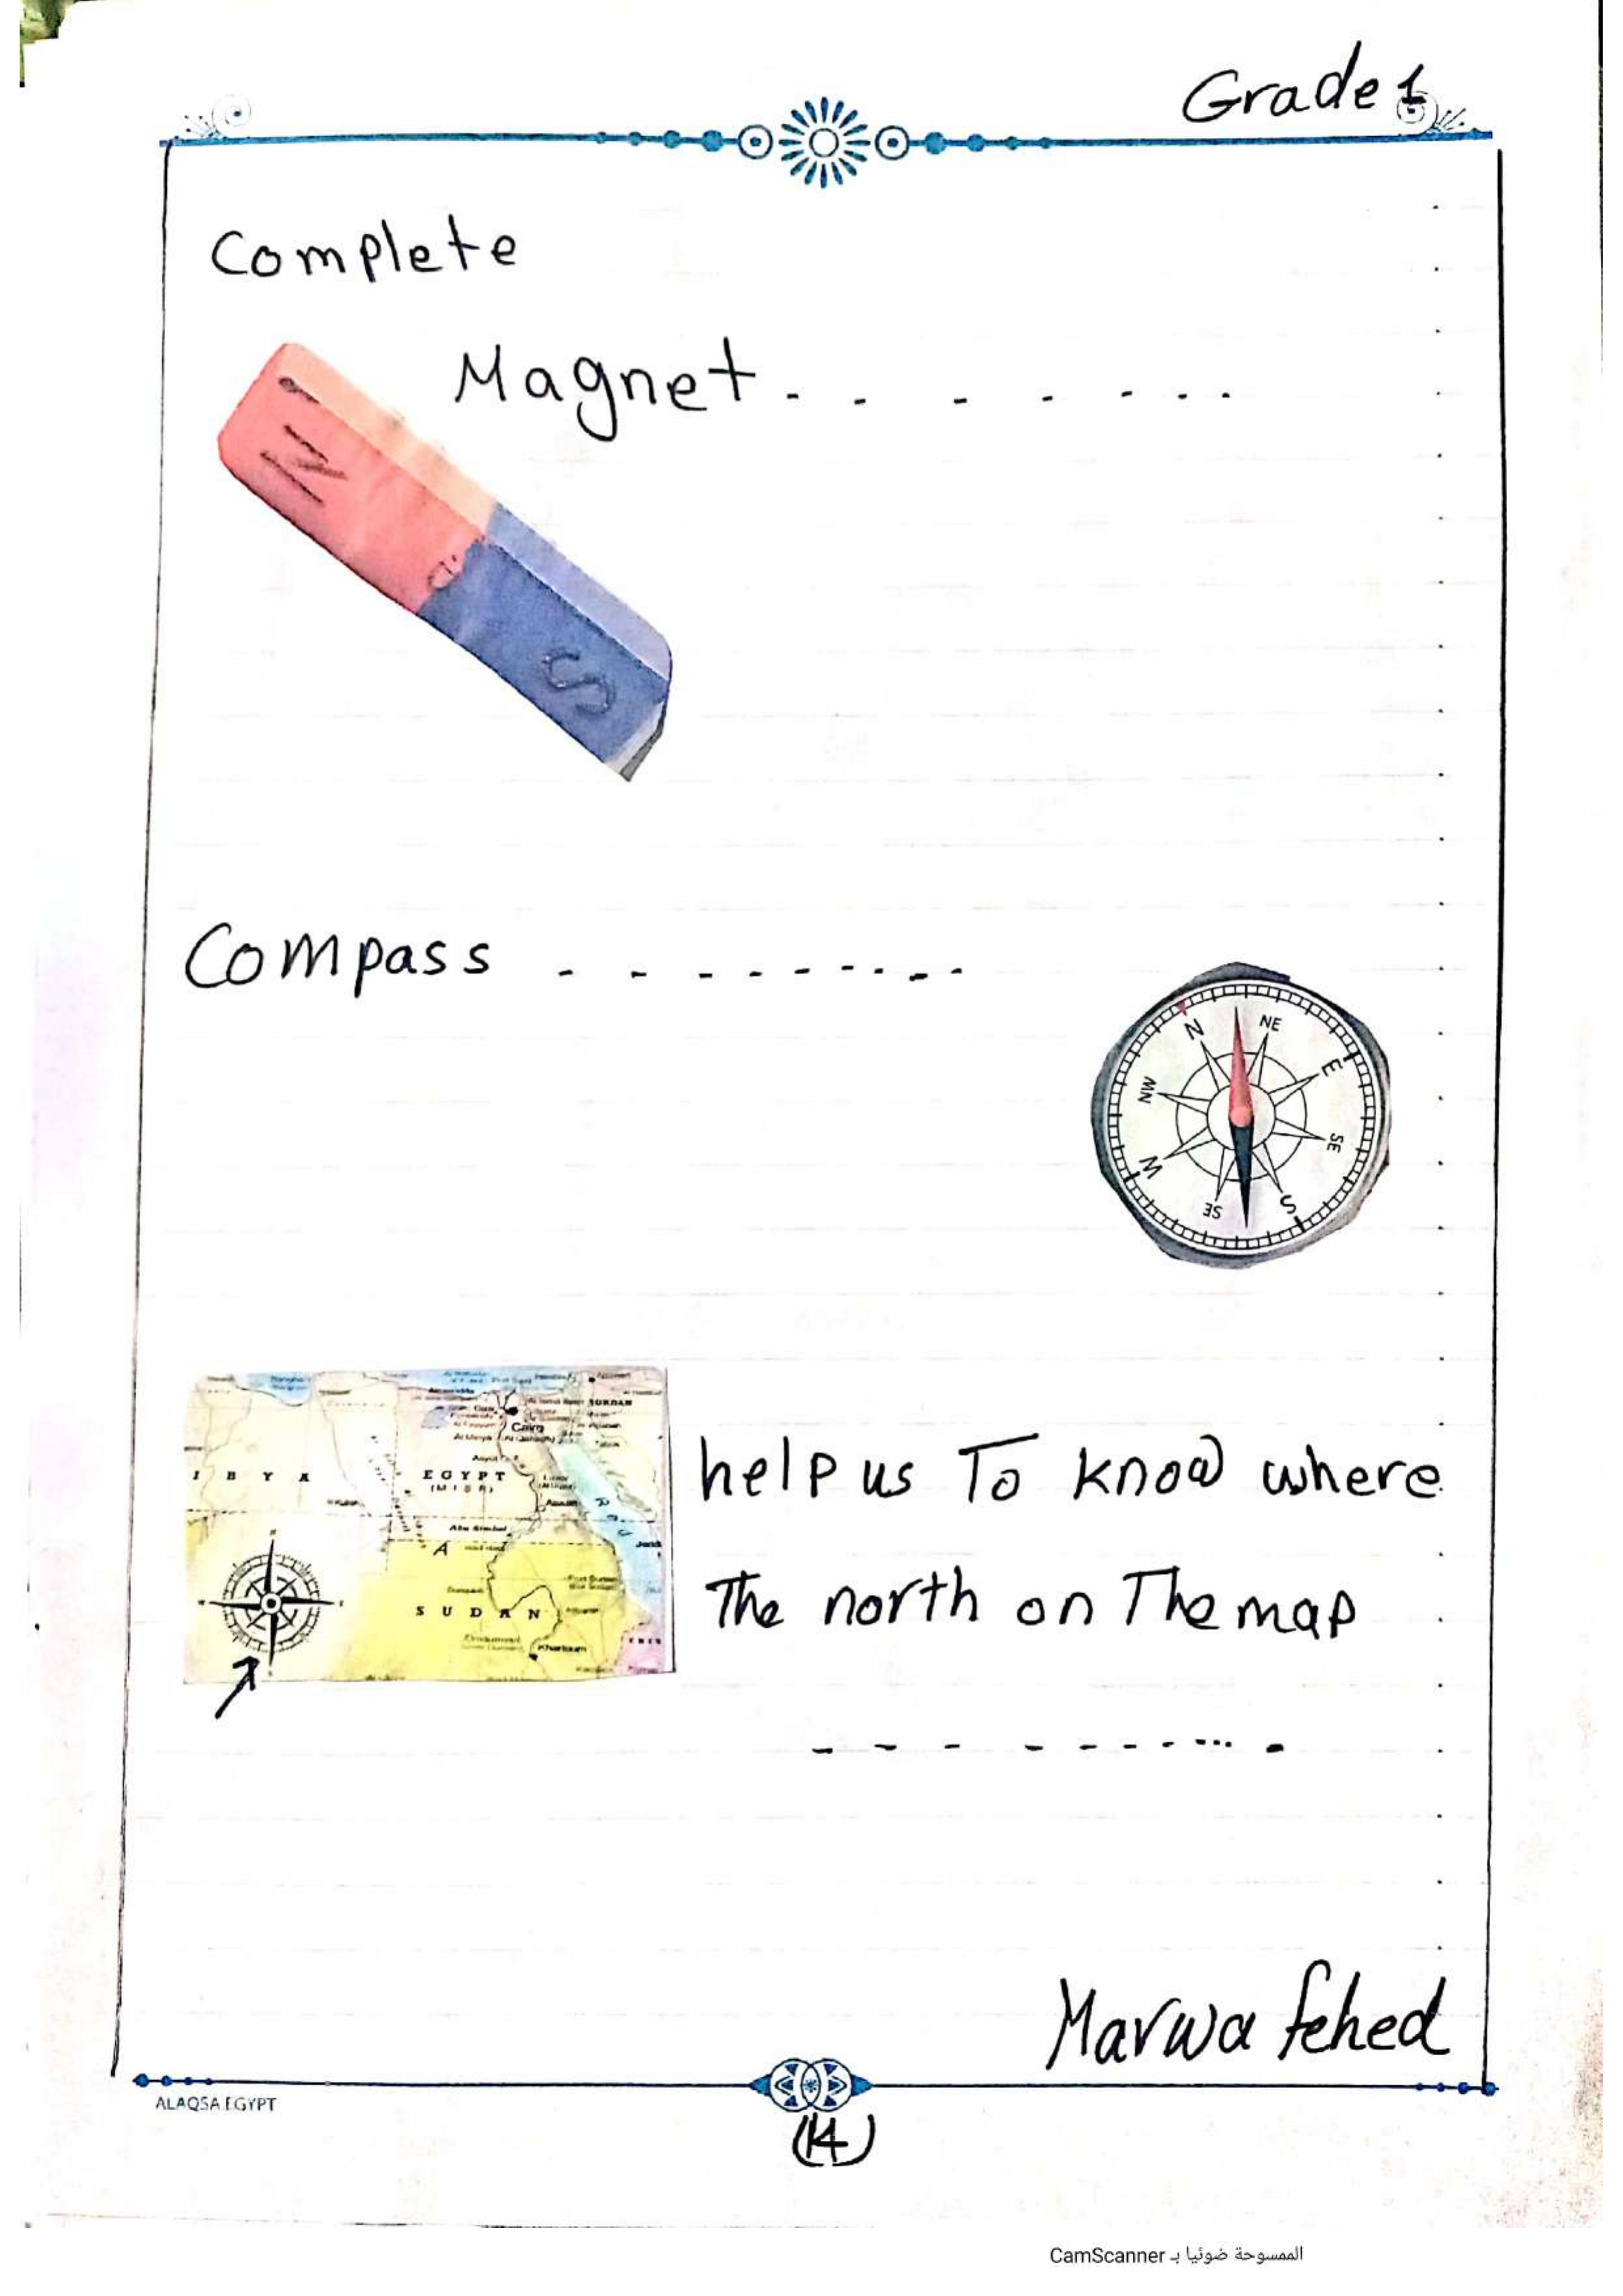 Grade 1
Complete
Magnet. . . . . . . .
N
S
Compass - - - - - - - - - -
N
NE
E
SE
S
SE
W
NW
JORDAN
Cairo
I B Y A
EGYPT
(MISR)
Aswan
Abu Simbel
A
SUDAN
Khartoum
help us To know where
The north on The map
- - - - - - - - ... -
Marwa fehed
ALAQSA EGYPT
(14)
الممسوحة ضوئيا بـ CamScanner